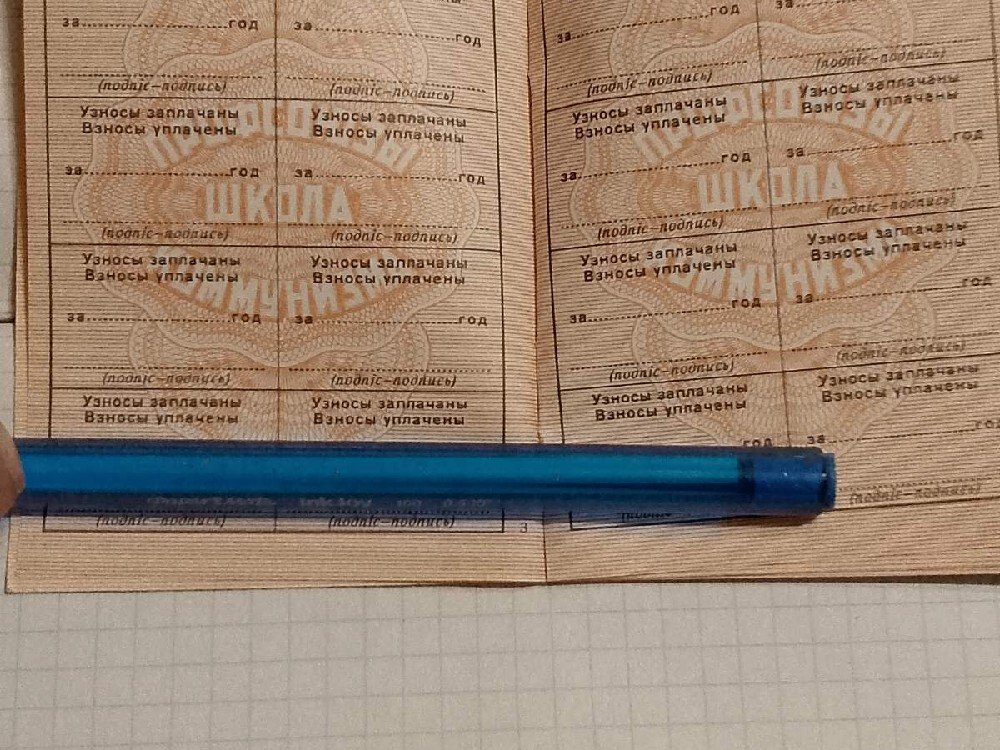 за год за год
(подпіс–подпись) (подпіс–подпись)
Узносы заплачаны Узносы заплачаны
Взносы уплачены Взносы уплачены
ПРОФСОЮЗЫ
за год за год
ШКОЛА
(подпіс–подпись) (подпіс–подпись)
Узносы заплачаны Узносы заплачаны
Взносы уплачены Взносы уплачены
КОММУНИЗМА
за год за год
(подпіс–подпись) (подпіс–подпись)
Узносы заплачаны Узносы заплачаны
Взносы уплачены Взносы уплачены
(подпіс–подпись) (подпіс–подпись)
3
за год за
(подпіс–подпись) (подпіс–подпись)
Узносы заплачаны Узносы заплачаны
Взносы уплачены Взносы уплачены
ПРОФСОЮЗЫ
за год за год
ШКОЛА
(подпіс–подпись) (подпіс–подпись)
Узносы заплачаны Узносы заплачаны
Взносы уплачены Взносы уплачены
КОММУНИЗМА
за год за год
(подпіс–подпись) (подпіс–подпись)
Узносы заплачаны Узносы заплачаны
Взносы уплачены Взносы уплачены
год за год
(подпіс–подпись)